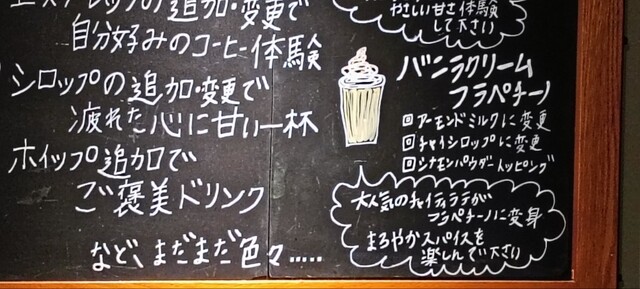 エスプレッソの追加・変更で
自分好みのコーヒー体験
シロップの追加・変更で
疲れた心に甘い一杯
ホイップ追加で
ご褒美ドリンク
など、まだまだ色々.....
やさしい甘さ体験
して下さい
バニラクリーム
フラペチーノ
アーモンドミルクに変更
チャイシロップに変更
シナモンパウダートッピング
大人気のチャイティラテが
フラペチーノに変身
まろやかスパイスを
楽しんで下さい